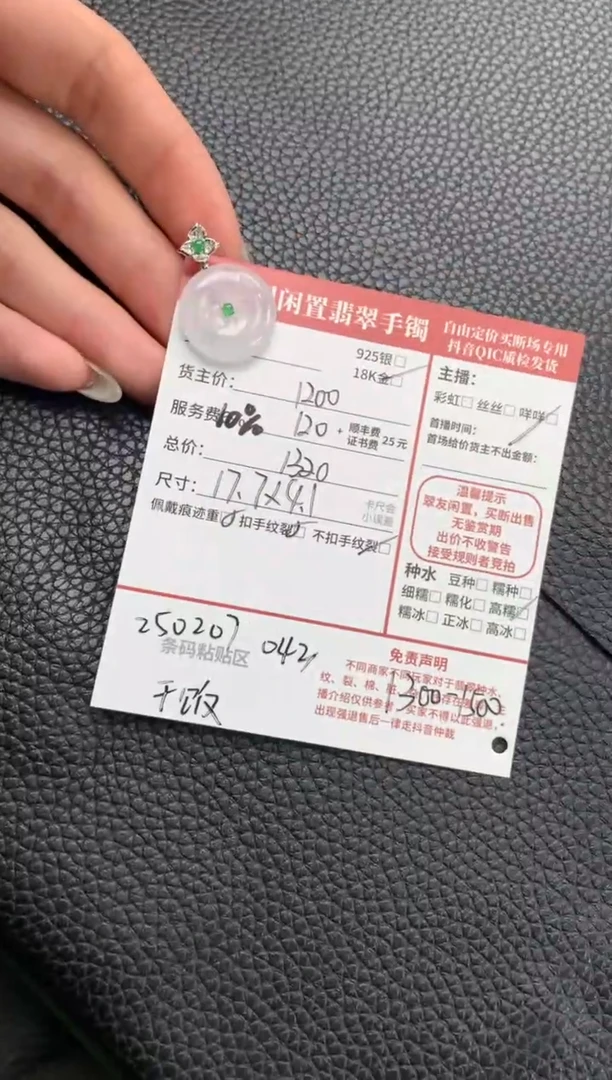 闲置翡翠手镯
自由定价买断场专用
抖音QIC质检发货
925银
18K金
货主价: 1200
服务费10% 120 + 顺丰费 证书费 25元
总价: 1320
尺寸: 17.7×4.1
卡尺会
小误差
佩戴痕迹重 扣手纹裂 不扣手纹裂
主播:
彩虹 丝丝 咩咩
首播时间:
首场给价货主不出金额:
温馨提示
翠友闲置，买断出售
无鉴赏期
出价不收警告
接受规则者竞拍
种水 豆种 糯种
细糯 糯化 高糯
糯冰 正冰 高冰
250207 042
条码粘贴区
免责声明
不同商家不同玩家对于翡翠种水、
纹、裂、棉、
播介绍仅供参考，买家不得以此强退，
出现强退售后一律走抖音仲裁
1300-1500